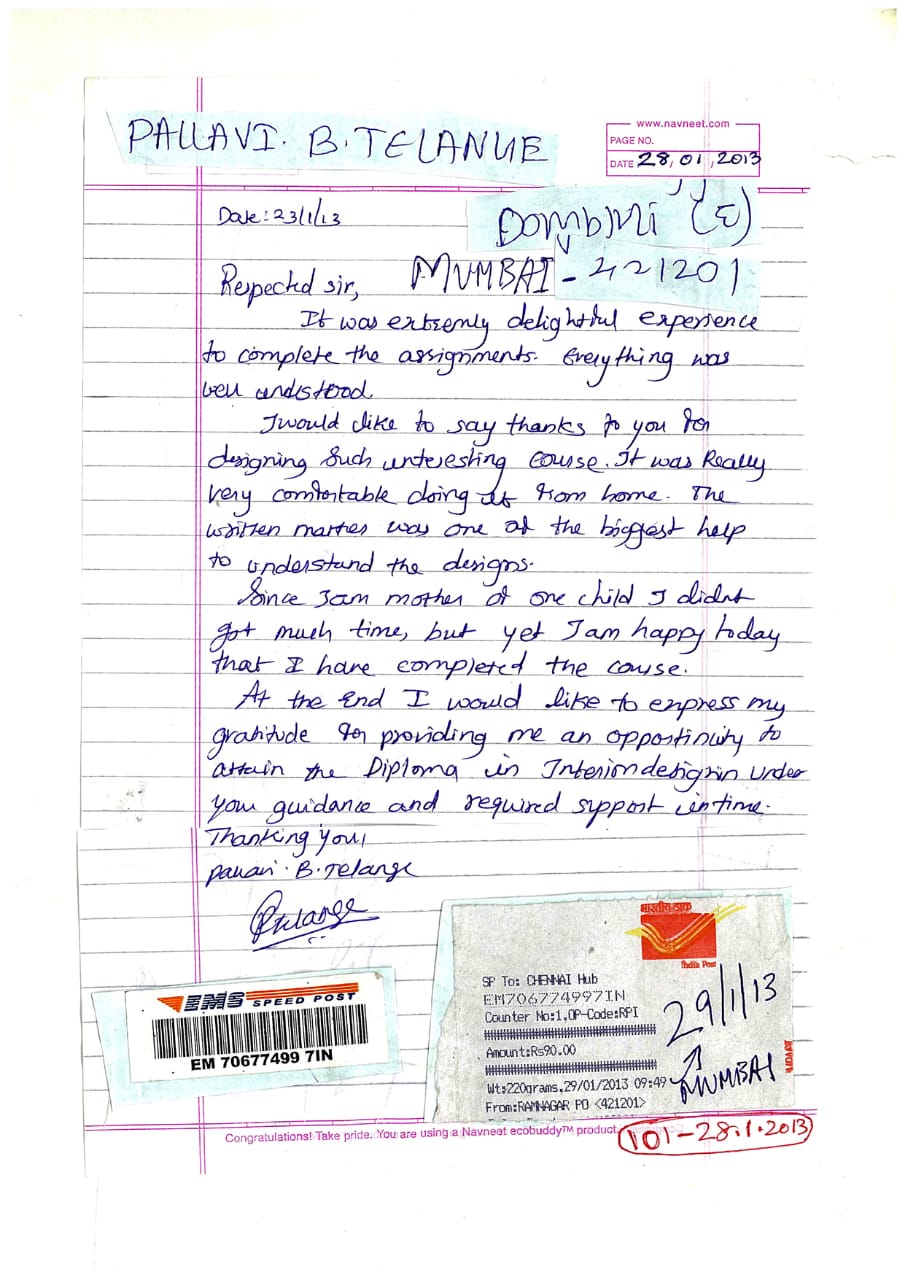 PALLAVI. B. TELANGE
www.navneet.com
PAGE NO.
DATE 28,01,2013
Date: 23/1/13
Dombivli (E)
MUMBAI - 421201
Respected sir,
It was extremly delightful experience
to complete the assignments. Everything was
well undstood.
I would like to say thanks to you for
designing such interesting course. It was Really
very comfortable doing it from home. The
written matter was one of the biggest help
to understand the designs.
Since I am mother of one child I didnt
got much time, but yet I am happy today
that I have completed the course.
At the End I would like to express my
gratitude for providing me an opportinuity to
attain the Diploma in Interiordesignin under
your guidance and required support in time.
Thanking you,
Pallavi. B. Telange
PTelange
भारतीय डाक
India Post
SP To: CHENNAI Hub
EM706774997IN
Counter No:1,OP-Code:RPI
Amount:Rs90.00
Wt:220grams,29/01/2013 09:49
From:RAMNAGAR PO <421201>
29/1/13
MUMBAI
EMS SPEED POST
EM 70677499 7IN
Congratulations! Take pride. You are using a Navneet ecobuddy™ product.
101-28.1.2013